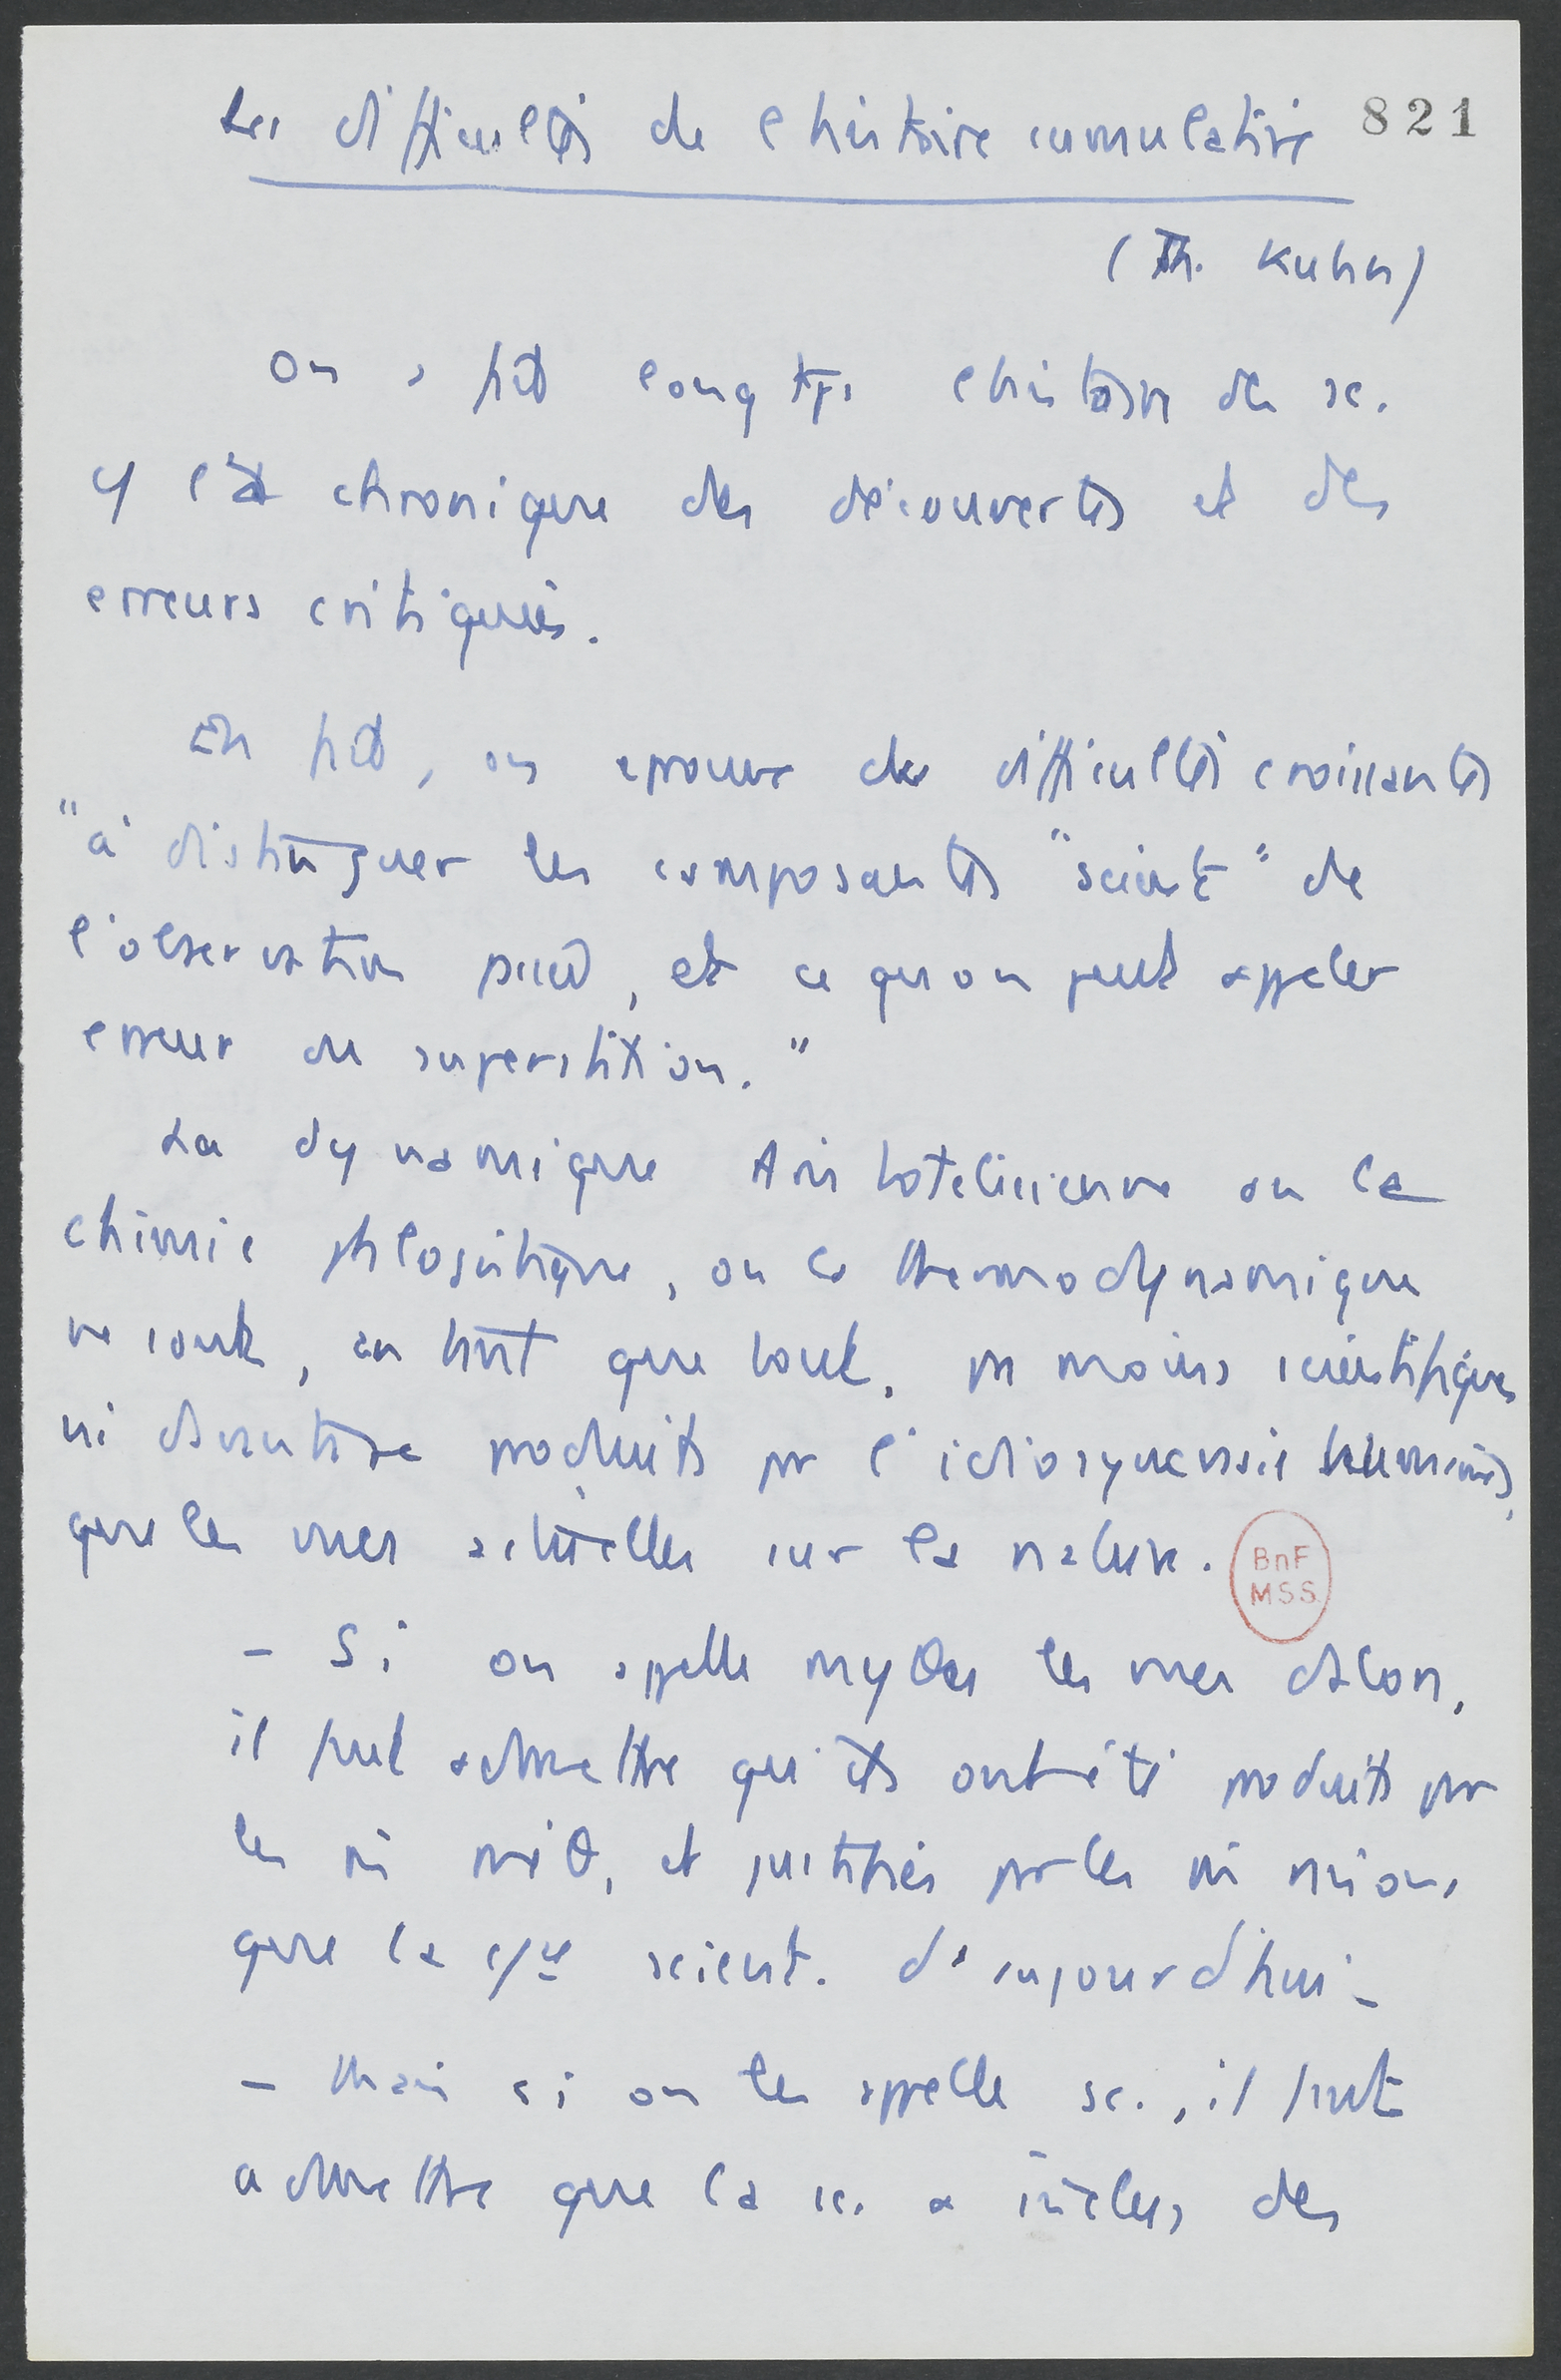 Les difficultés de l histoire cumulative 821
(Th. Kuhn)
On a fait longtps l histoire des sc.
c/ l'x chronique des découvertes et des
erreurs critiquées.
En fait, on éprouve des difficultés croissantes
"à distinguer les composantes "scient" de
l'observation passée, et ce qu on peut appeler
erreur ou superstition."
La dynamique Aristotélicienne ou la
chimie phlogistique, ou la thermodynamique
ne sont, en tant que tout, ni moins scientifiques
ni davantage produits pr l'idiosyncrasie humaine,
que les vues actuelles sur la nature.
BnF
MSS
– Si on appelle mythes les vues d'alors,
il faut admettre qu'ils ont été produits pr
les m̂ méth, et justifiés pr les m̂ raisons
que la c/ce scient. d'aujourd'hui –
– Mais si on les appelle sc., il faut
admettre que la sc. a inclus des